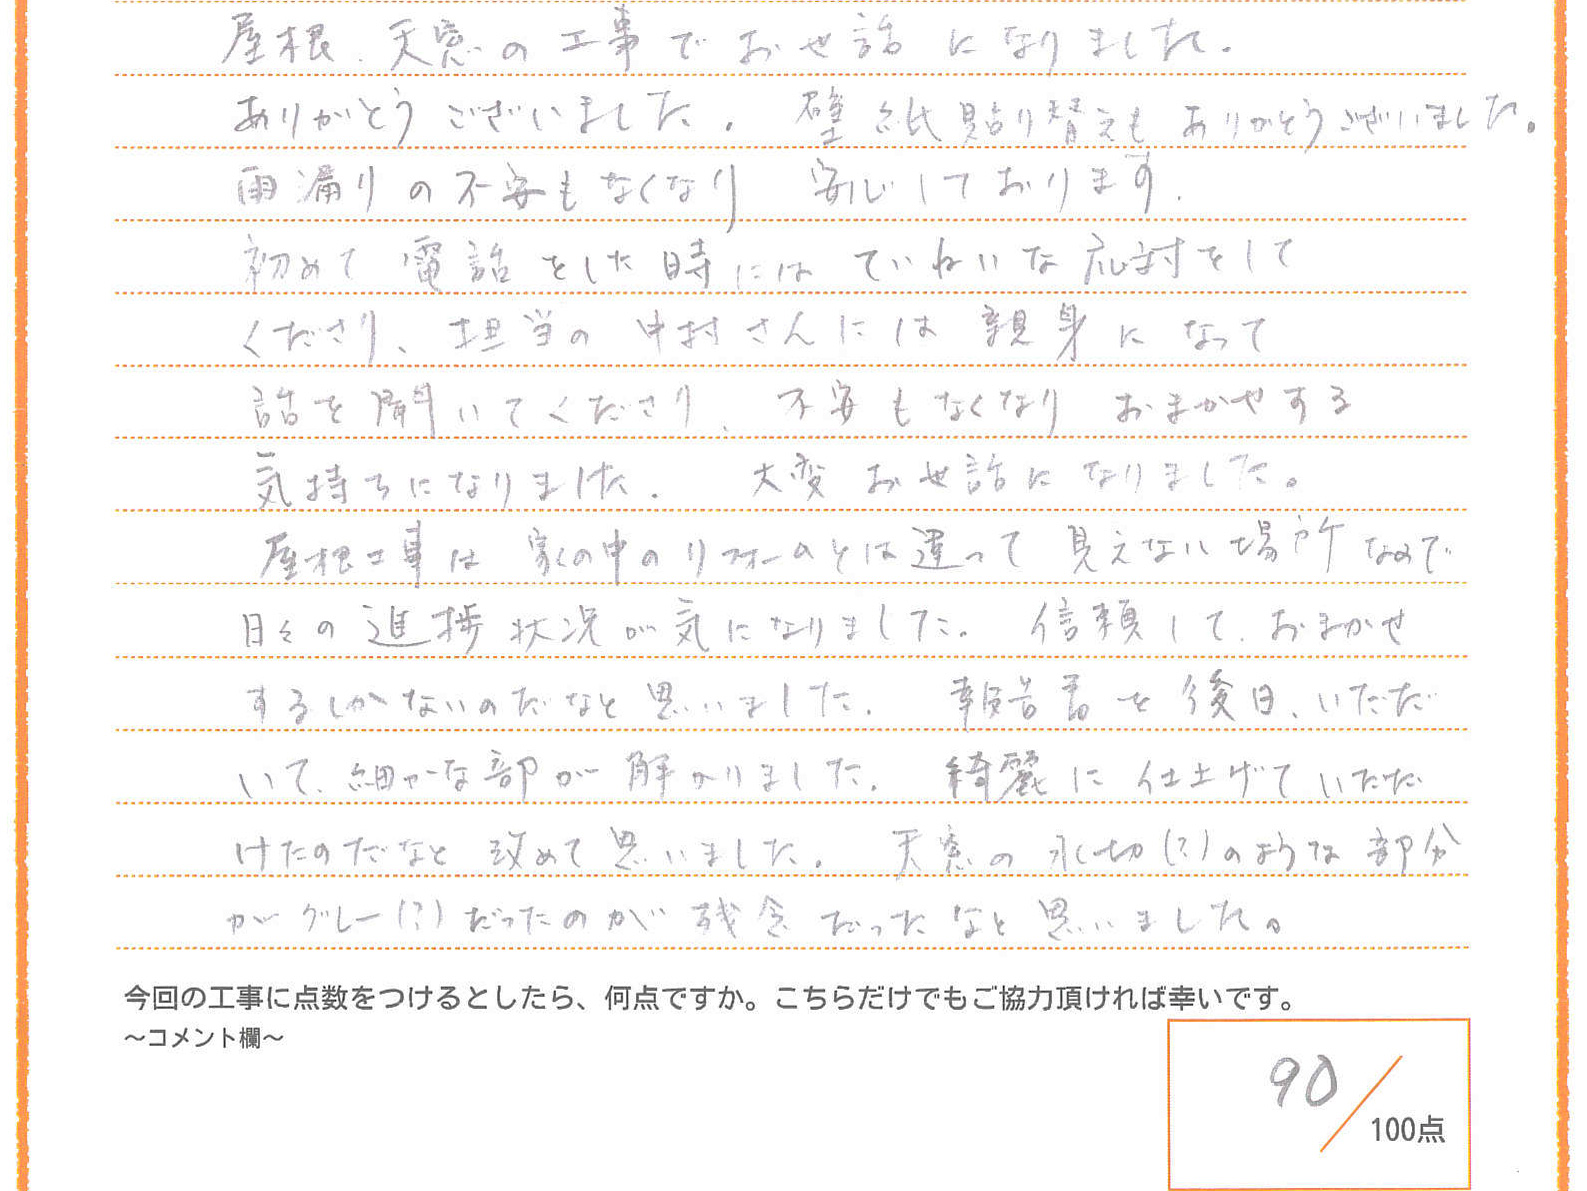 屋根、天窓の工事でお世話になりました。
ありがとうございました。壁紙貼り替えもありがとうございました。
雨漏りの不安もなくなり 安心しております。
初めて電話をした時にはていねいな応対をして
くださり、担当の中村さんには親身になって
話を聞いてくださり、不安もなくなりおまかせする
気持ちになりました。大変お世話になりました。
屋根工事は家の中のリフォームとは違って見えない場所なので
日々の進捗状況が気になりました。信頼して、おまかせ
するしかないのだなと思いました。報告書を後日、いただ
いて、細かな部が解かりました。綺麗に仕上げていただ
けたのだなと改めて思いました。天窓の水切(?)のような部分
がグレー(?)だったのが残念だったなと思いました。
今回の工事に点数をつけるとしたら、何点ですか。こちらだけでもご協力頂ければ幸いです。
～コメント欄～
90/100点